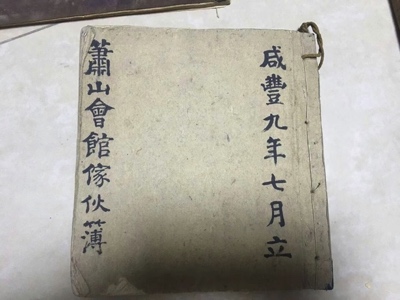 咸豐九年七月立
蕭山會館傢伙簿